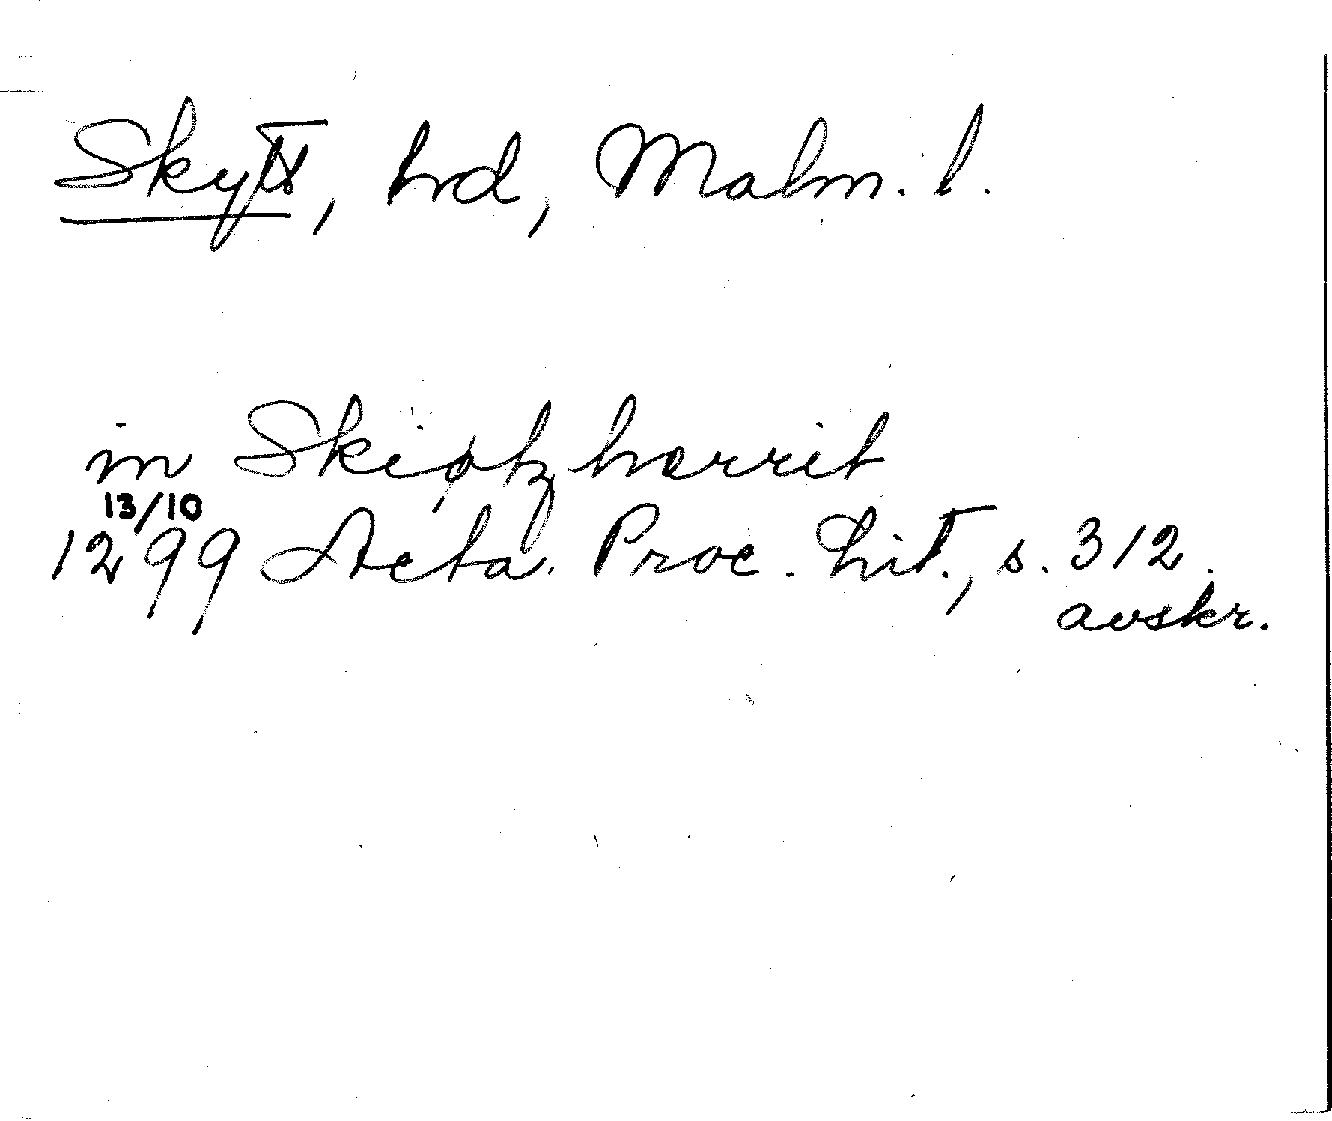 Skytts, hrd, Malm. l.
in Skiøtzherrit
13/10
1299 Acta Proc. Lit., s. 312.
avskr.